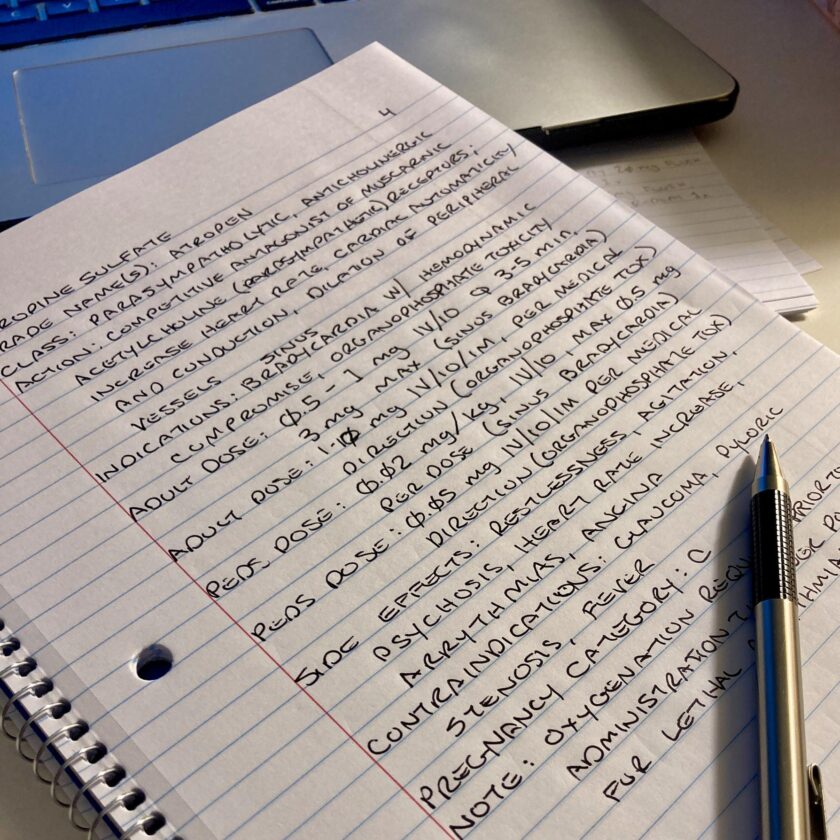 4
ROPINE SULFATE
RADE NAME(S): ATROPEN
CLASS: PARASYMPATHOLYTIC, ANTICHOLINERGIC
ACTION: COMPETITIVE ANTAGONIST OF MUSCARNIC
ACETYLCHOLINE (PARASYMPATHETIC) RECEPTORS;
INCREASE HEART RATE, CARDIAC AUTOMATICITY
AND CONDUCTION, DILATION OF PERIPHERAL
VESSELS
SINUS
INDICATIONS: BRADYCARDIA W/ HEMODYNAMIC
COMPROMISE, ORGANOPHOSPHATE TOXICITY
ADULT DOSE: 0.5 - 1 mg IV/IO Q 3-5 min
3 mg MAX (SINUS BRADYCARDIA)
ADULT DOSE: mg IV/IO/IM, PER MEDICAL
DIRECTION (ORGANOPHOSPHATE TOX)
PEDS DOSE: 0.02 mg/kg, IV/IO, MAX 0.5 mg
PER DOSE (SINUS BRADYCARDIA)
PEDS DOSE: 0.05 mg IV/IO/IM PER MEDICAL
DIRECTION (ORGANOPHOSPHATE TOX)
SIDE EFFECTS: RESTLESSNESS, AGITATION,
PSYCHOSIS, HEART RATE INCREASE,
ARRYTHMIAS, ANGINA
CONTRAINDICATIONS: GLAUCOMA, PYLORIC
STENOSIS, FEVER
PREGNANCY CATEGORY: C
NOTE: OXYGENATION REQU PRIOR TO
ADMINISTRATION
FOR LETHAL